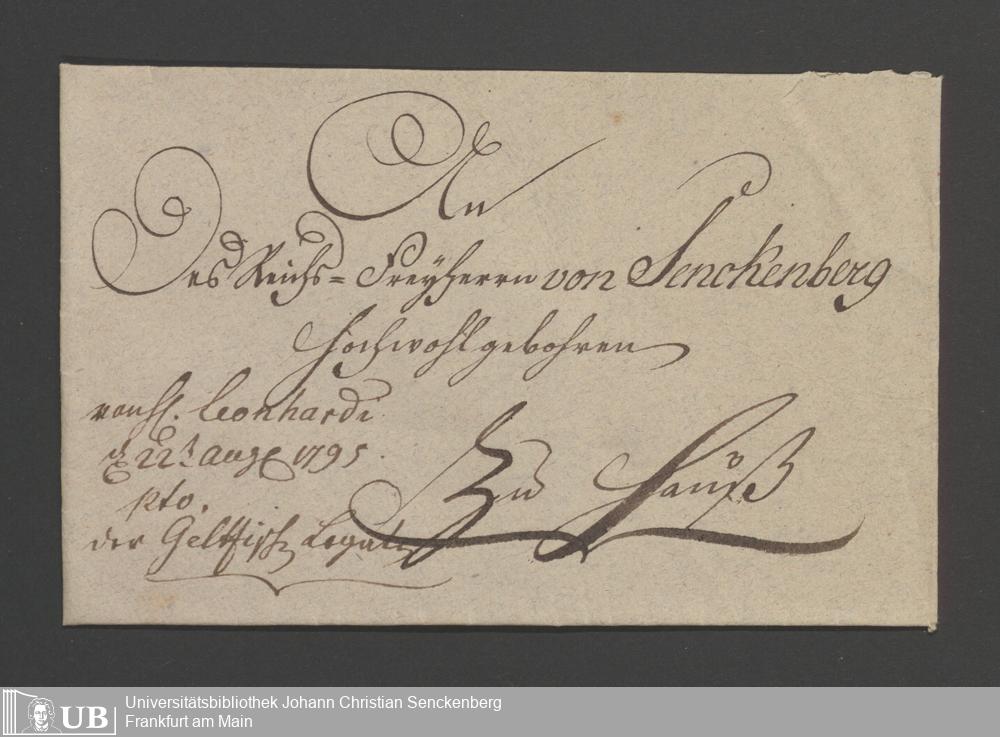 An
Des Reichs= Freyherrn von Senckenberg
Hochwohlgebohren
Zu Hauß
von H. Leonhardi
d. 22t. Aug. 1795.
pto.
der Legate
UB
Universitätsbibliothek Johann Christian Senckenberg
Frankfurt am Main